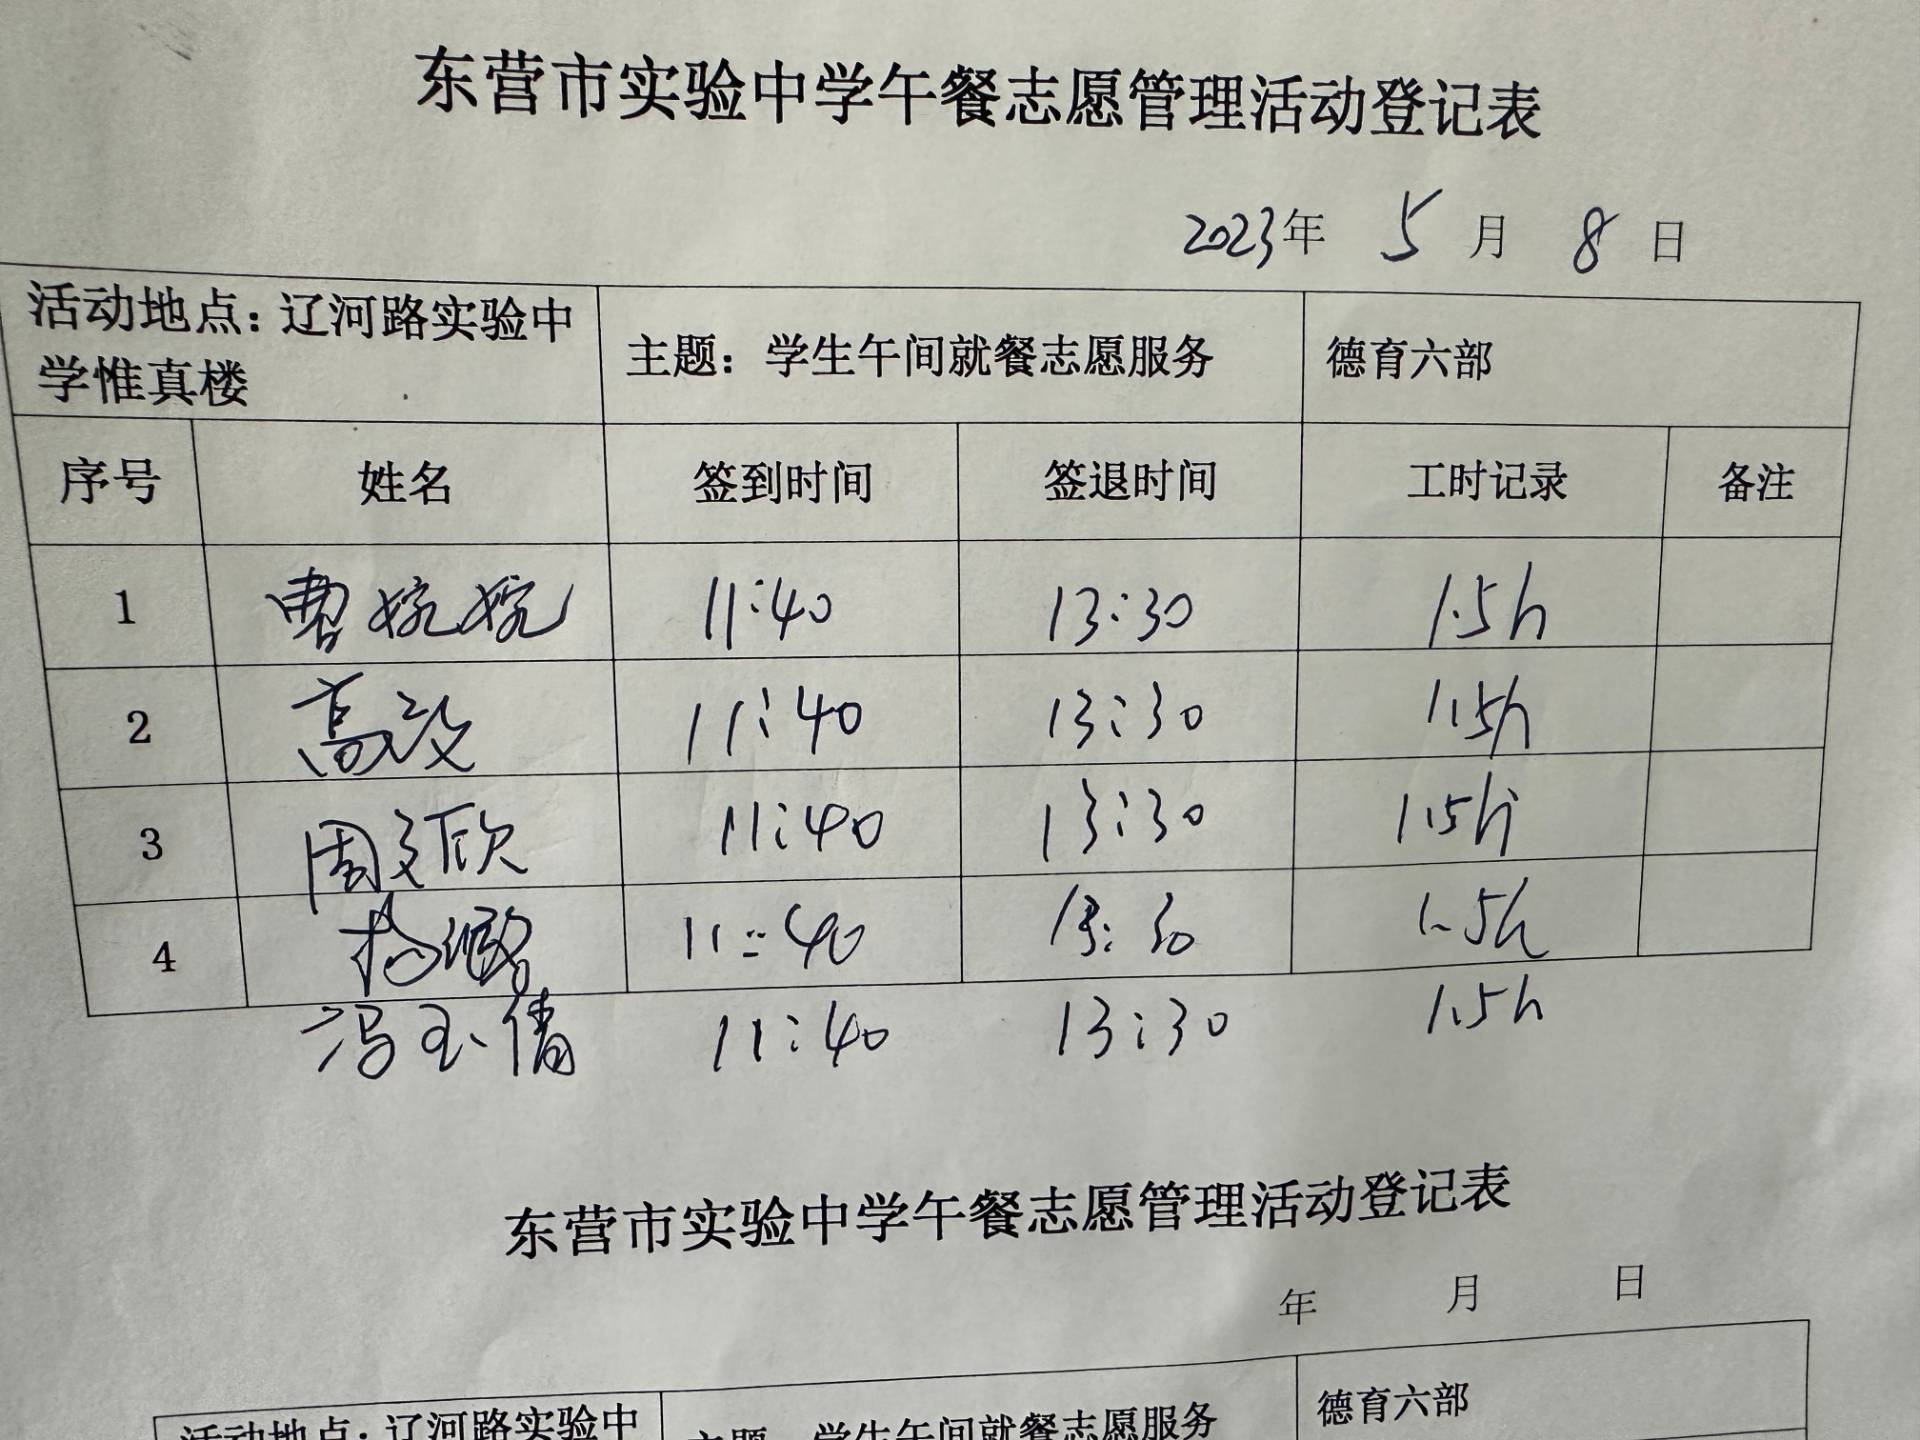 东营市实验中学午餐志愿管理活动登记表
2023年 5 月 8 日
活动地点：辽河路实验中
学惟真楼
主题：学生午间就餐志愿服务
德育六部
序号 姓名 签到时间 签退时间 工时记录 备注
1 曹婉婉 11:40 13:30 1.5h
2 高 11:40 13:30 1.5h
3 周文欣 11:40 13:30 1.5h
4 杨 11:40 13:30 1.5h
冯玉倩 11:40 13:30 1.5h
东营市实验中学午餐志愿管理活动登记表
年 月 日
活动地点：辽河路实验中
主题：学生午间就餐志愿服务
德育六部